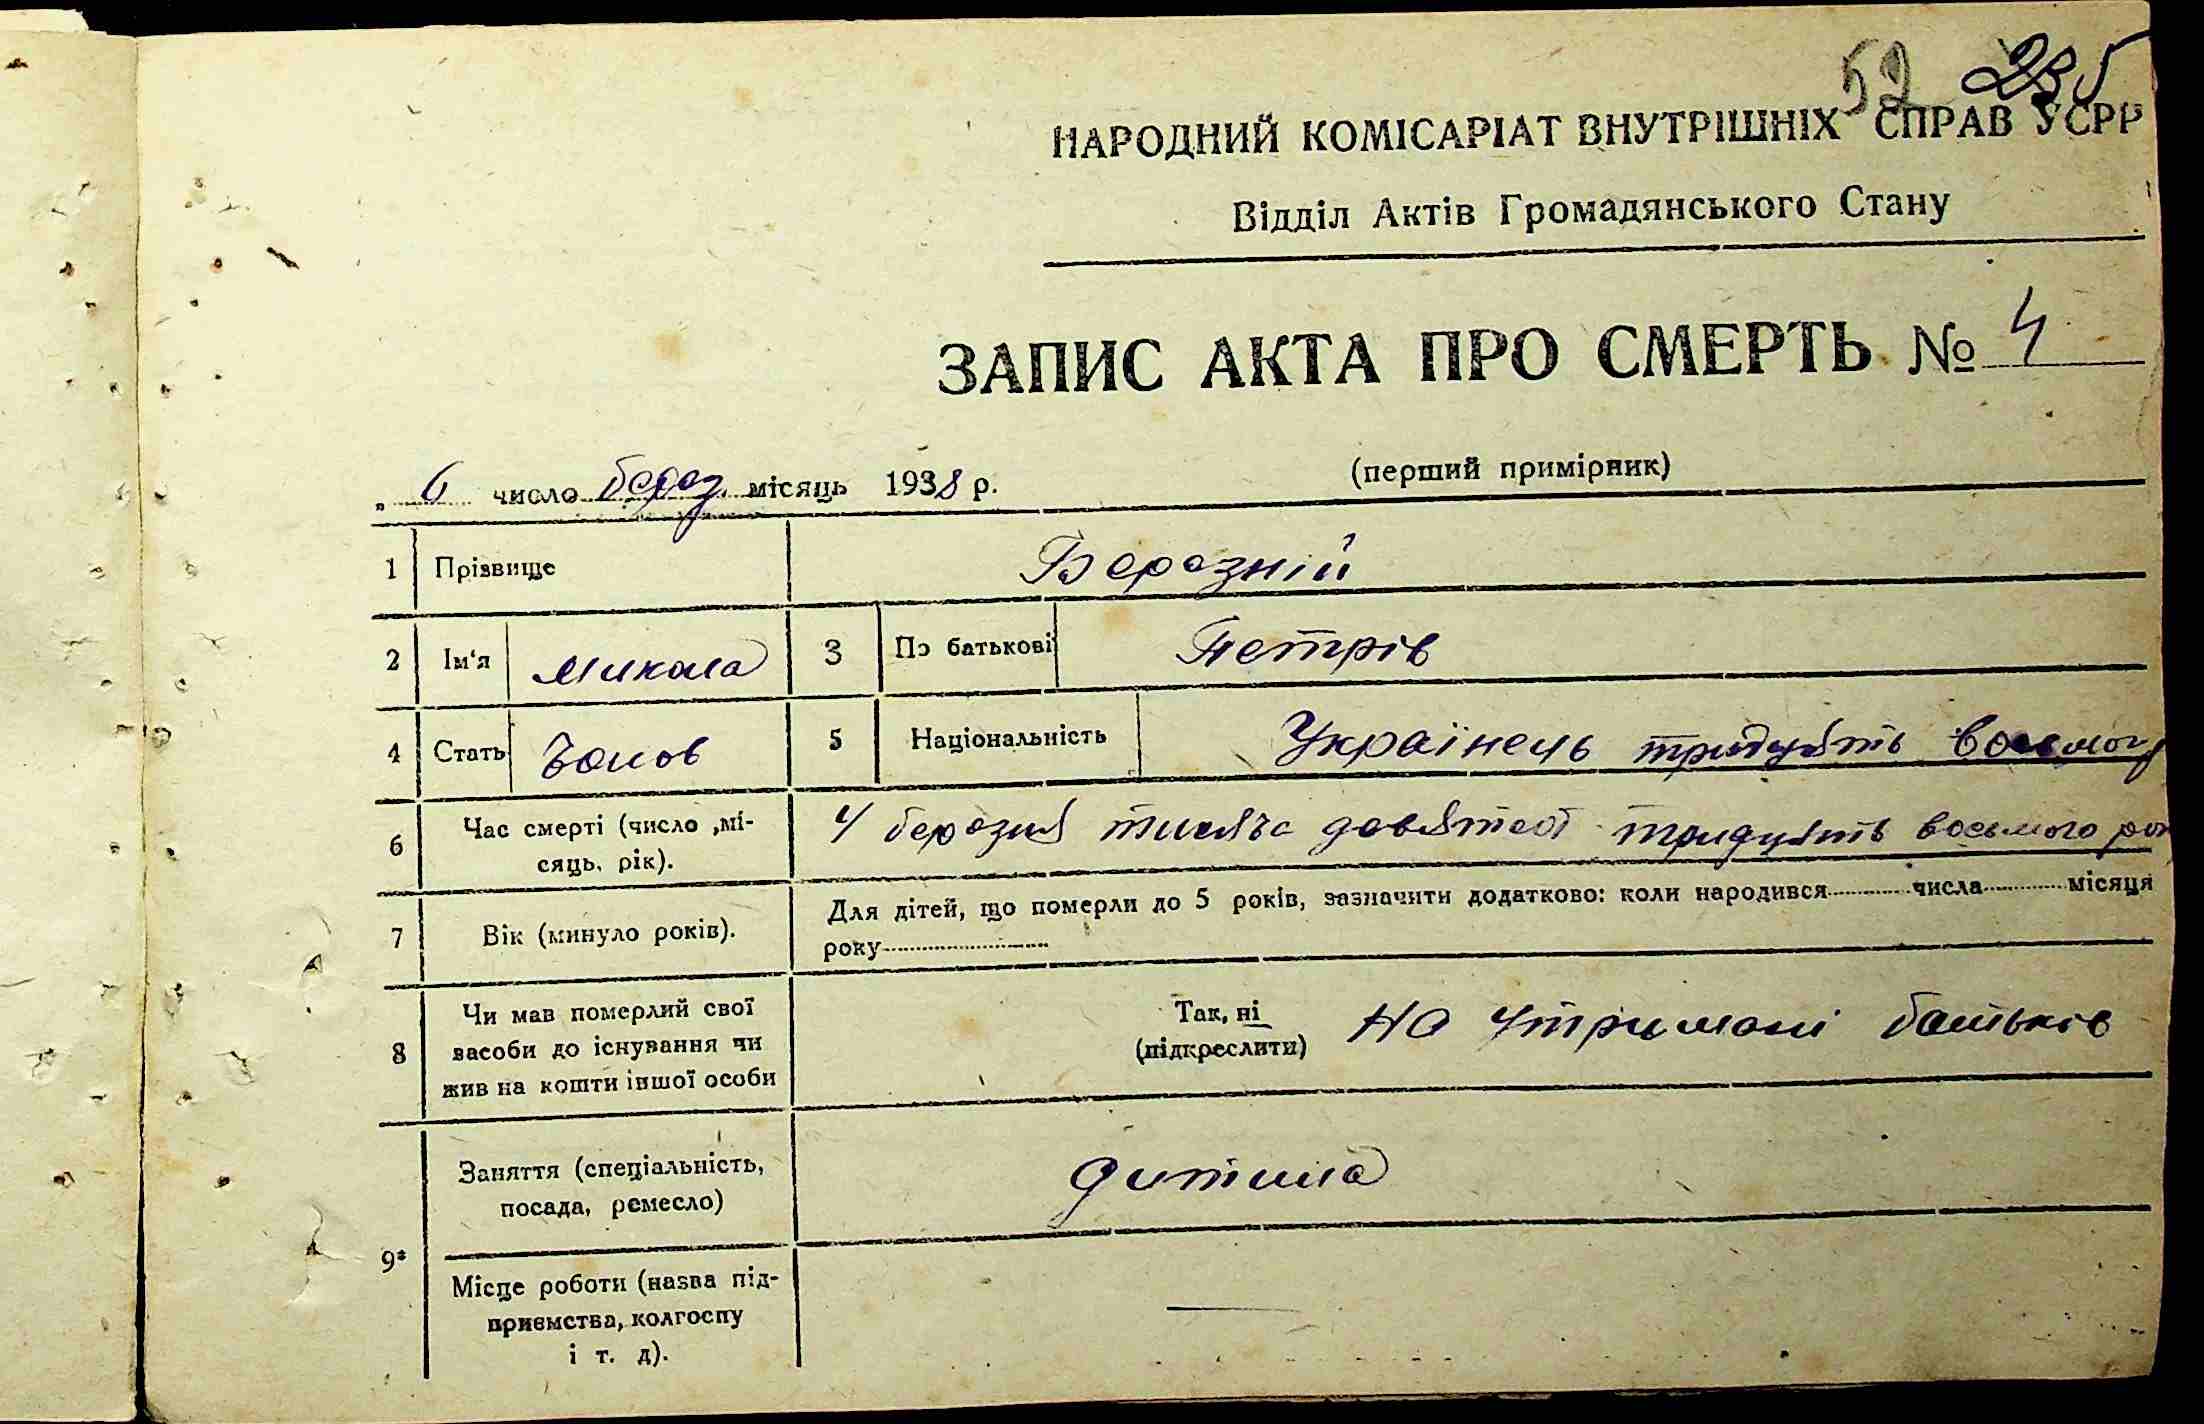 52 235
НАРОДНИЙ КОМІСАРІАТ ВНУТРІШНІХ СПРАВ УСРР
Відділ Актів Громадянського Стану
ЗАПИС АКТА ПРО СМЕРТЬ № 4
(перший примірник)
„ 6 число берез. місяць 1938 р.
1 Прізвище Березній
2 Ім'я Микола 3 По батькові Петрів
4 Стать Чолов 5 Національність Українець тридцять восьмого
6 Час смерті (число ,мі-
сяць, рік). 4 березня тисяча девятсот тридцять восьмого рок
7 Вік (минуло років). Для дітей, що померли до 5 років, зазначити додатково: коли народився числа місяця
року
8 Чи мав померлий свої
засоби до існування чи
жив на кошти іншої особи Так, ні
(підкреслити) на утримані батьків
9* Заняття (спеціальність,
посада, ремесло) дитина
Місце роботи (назва під-
приємства, колгоспу
і т. д).